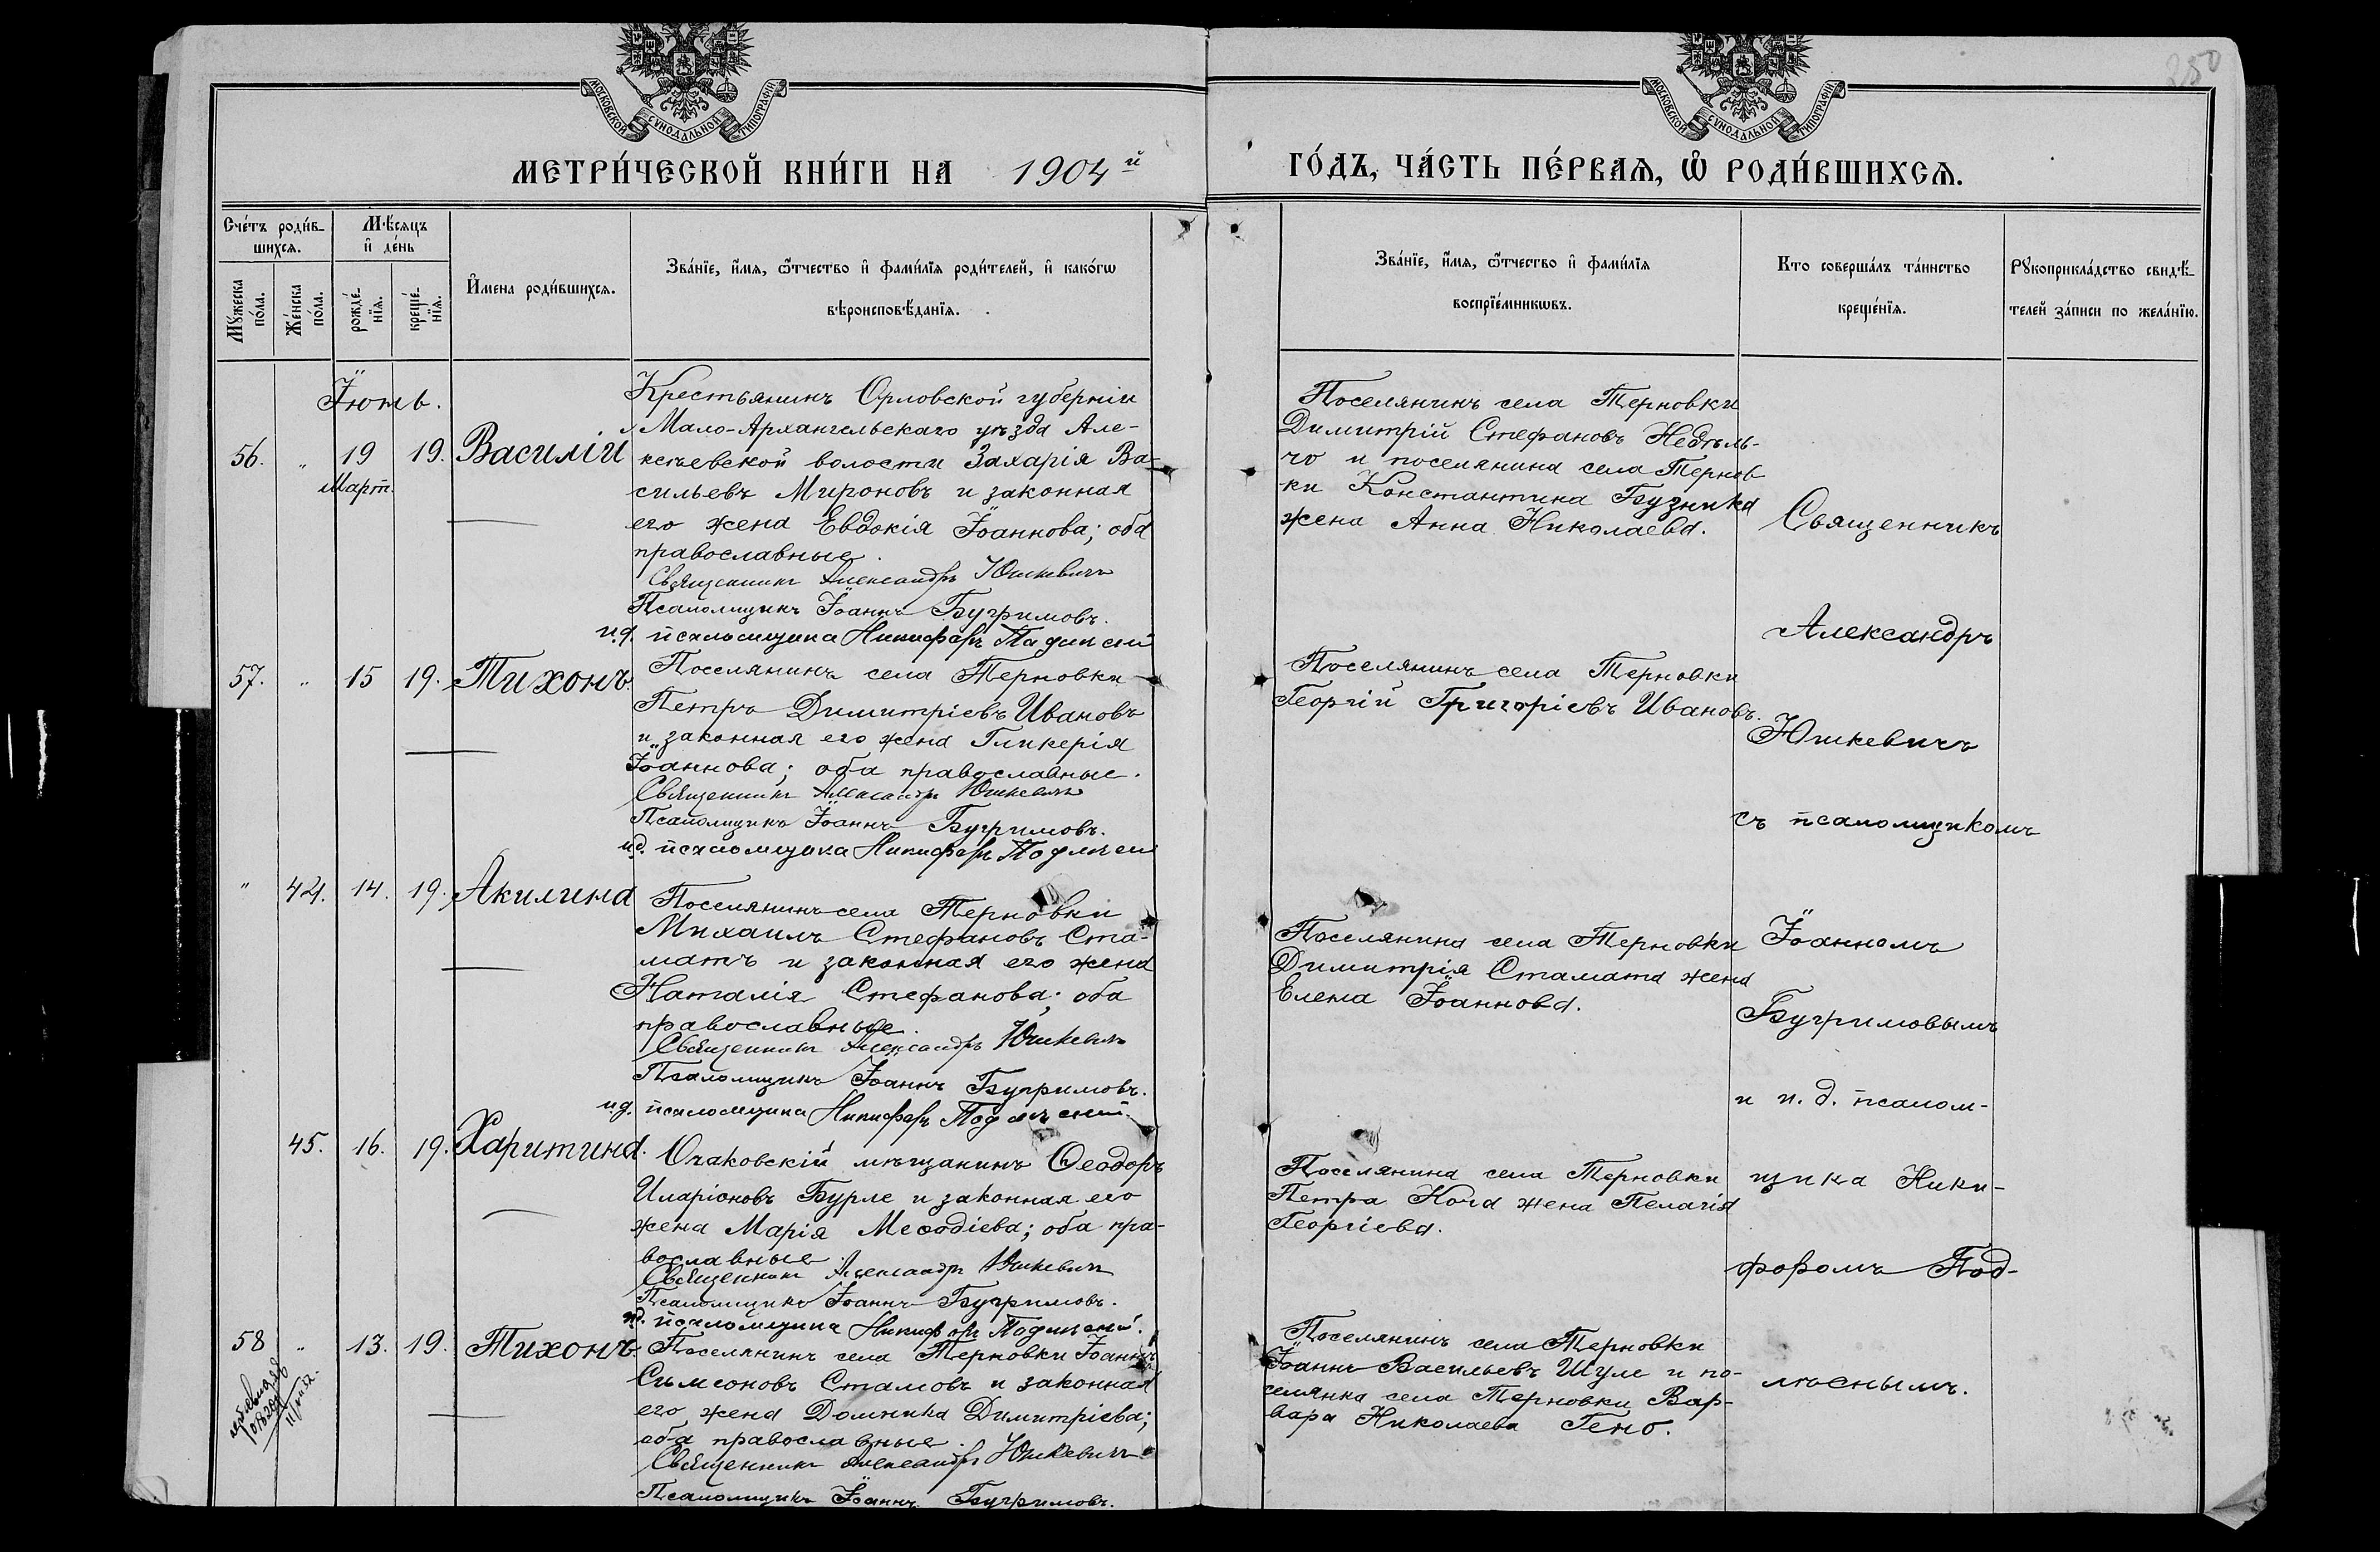 250
МОСКОВСКОЙ СУНОДАЛЬНОЙ ТИПОГРАФІИ
МОСКОВСКОЙ СУНОДАЛЬНОЙ ТИПОГРАФІИ
МЕТРИ́ЧЕСКОЙ КНИ́ГИ НА 1904й
ГО́ДЪ, ЧА́СТЬ ПЕ́РВАѦ, Ѡ҆ РОДИ́ВШИХСѦ.
Сче́тъ роди́в-
шихсѧ.
Мꙋ́жеска
по́ла.
Же́нска
по́ла.
Мѣ́сѧцъ
и҆ де́нь
рожде́-
нїѧ.
креще́-
нїѧ.
И҆мена роди́вшихсѧ.
Зва́нїе, и҆́мѧ, ѻ҆́тчество и҆ фами́лїѧ роди́телей, и҆ како́гѡ
вѣроисповѣ́данїѧ.
Зва́нїе, и҆́мѧ, ѻ҆́тчество и҆ фами́лїѧ
воспрїе́мникѡвъ.
Кто соверша́лъ та́инство
креще́нїѧ.
Рꙋкоприкла́дство свидѣ́-
телей за́писи по жела́нїю.
Іюнь.
56. „ 19 19. Василій
Март.
Крестьянинъ Орловской губерніи
Мало-Архангельскаго уѣзда Але-
ксѣевской волости Захарія Ва-
сильевъ Мироновъ и законная
его жена Евдокія Іоаннова; оба
православные.
Священникъ Александръ Юшкевичъ
Псаломщикъ Іоаннъ Бугримовъ.
и.д. псаломщика Никифоръ Подлѣсный
Поселянинъ села Терновки
Димитрій Стефановъ Недѣль-
чо и поселянина села Тернов-
ки Константина Бузника
жена Анна Николаева.
57. „ 15 19. Тихонъ.
Поселянинъ села Терновки
Петръ Димитріевъ Ивановъ
и законная его жена Гликерія
Іоаннова; оба православные.
Священникъ Александръ Юшкевичъ
Псаломщикъ Іоаннъ Бугримовъ.
и.д. псаломщика Никифоръ Подлѣсный
Поселянинъ села Терновки
Георгій Григоріевъ Ивановъ.
„ 44. 14. 19. Акилина
Поселянинъ села Терновки
Михаилъ Стефановъ Ста-
матъ и законная его жена
Наталія Стефанова; оба
православные.
Священникъ Александръ Юшкевичъ
Псаломщикъ Іоаннъ Бугримовъ.
и.д. псаломщика Никифоръ Подлѣсный.
Поселянина села Терновки
Димитрія Стамата жена
Елена Іоаннова.
45. 16. 19. Харитина.
Очаковскій мѣщанинъ Ѳеодоръ
Иларіоновъ Бурле и законная его
жена Марія Меѳодіева; оба пра-
вославные.
Священникъ Александръ Юшкевичъ
Псаломщикъ Іоаннъ Бугримовъ.
и.д. псаломщика Никифоръ Подлѣсный.
Поселянина села Терновки
Петра Кога жена Пелагія
Георгіева.
58 „ 13. 19. Тихонъ.
Поселянинъ села Терновки Іоаннъ
Симеоновъ Стамовъ и законная
его жена Домника Димитріева;
оба православные.
Священникъ Александръ Юшкевичъ
Псаломщикъ Іоаннъ Бугримовъ.
Поселянинъ села Терновки
Іоаннъ Васильевъ Шуле и по-
селянка села Терновки Вар-
вара Николаева Гено.
Священникъ
Александръ
Юшкевичъ
съ псаломщикомъ
Іоанномъ
Бугримовымъ
и и. д. псалом-
щика Ники-
форомъ Под-
лѣснымъ.